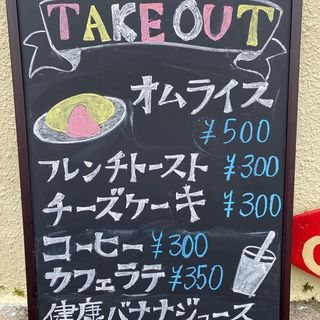 TAKE OUT
オムライス
¥500
フレンチトースト ¥300
チーズケーキ ¥300
コーヒー ¥300
カフェラテ ¥350
健康バナナジュース